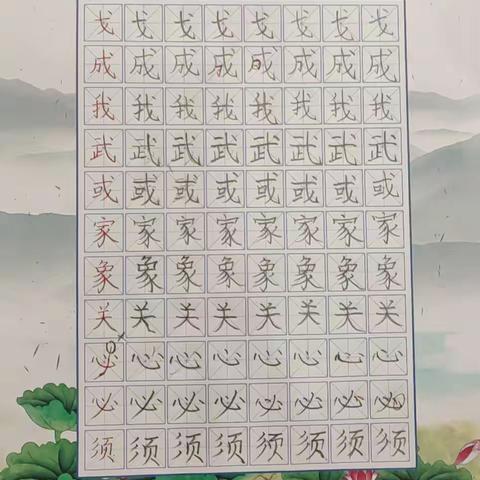 戈戈戈戈戈戈戈戈
成成成成成成成成
我我我我我我我我
武武武武武武武武
或或或或或或或或
家家家家家家家家
象象象象象象象象
关关关关关关关关
心心心心心心心心
必必必必必必必必
须须须须须须须须